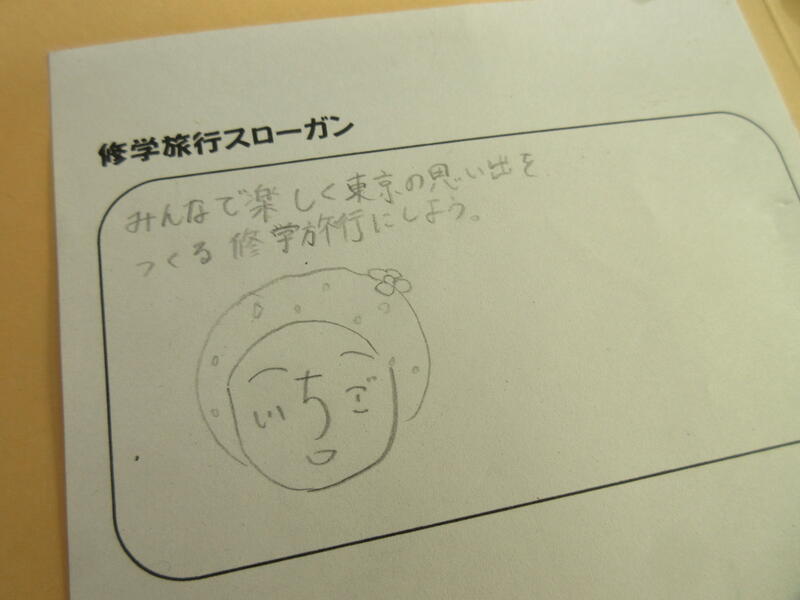 修学旅行スローガン
みんなで楽しく東京の思い出を
つくる修学旅行にしよう。
いちご